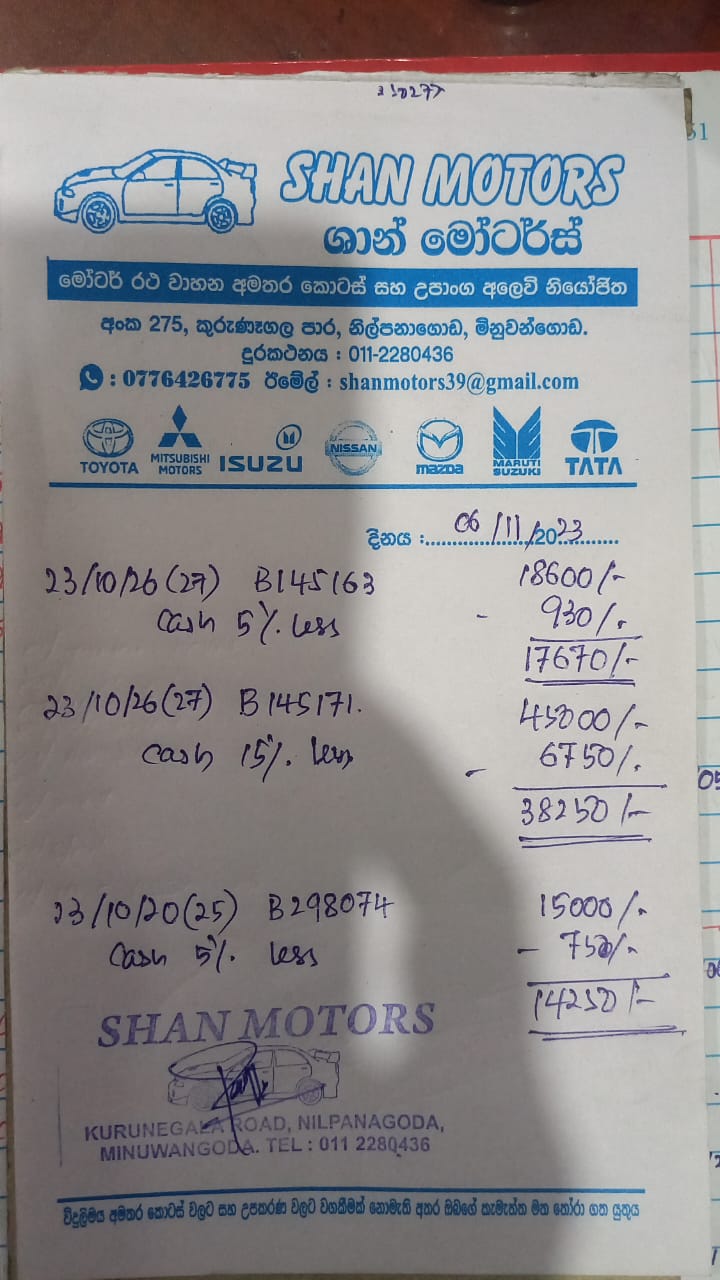 SHAN MOTORS
ශාන් මෝටර්ස්
මෝටර් රථ වාහන අමතර කොටස් සහ උපාංග අලෙවි නියෝජිත
අංක 275, කුරුණෑගල පාර, නිල්පනාගොඩ, මිනුවන්ගොඩ.
දුරකථනය : 011-2280436
: 0776426775 ඊමේල් : shanmotors39@gmail.com
TOYOTA MITSUBISHI MOTORS ISUZU NISSAN mazda MARUTI SUZUKI TATA
දිනය : 06/11/2023
23/10/26(27) B145163 18600/-
Cash 5%. less - 930/.
17670/-
23/10/26(27) B145171. 45000/-
Cash 15%. less - 6750/.
38250/-
23/10/20(25) B298074 15000/-
Cash 5%. less - 750/-
14250/-
SHAN MOTORS
KURUNEGALA ROAD, NILPANAGODA,
MINUWANGODA. TEL : 011 2280436
විදුලිමය අමතර කොටස් වලට සහ උපකරණ වලට වගකීමක් නොමැති අතර ඔබගේ කැමැත්ත මත තෝරා ගත යුතුය